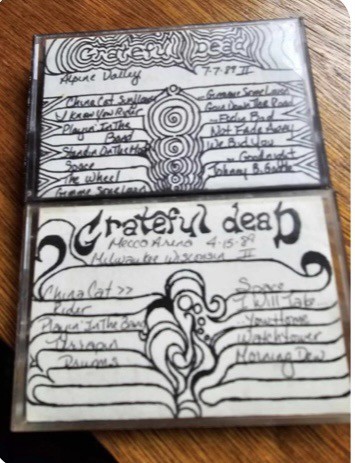 Grateful Dead
Alpine Valley 7-7-89 II
China Cat Sunflower
I Know You Rider
Playin' In The
Band
Standin On The Moon
Space
The Wheel
Gimme Some Lovin
Gimme Some Lovin
Goin Down The Road
Feelin Bad
Not Fade Away
We Bid You
Goodnight
Johnny B. Goode
Grateful dead
Mecca Arena 4-15-89
Milwaukee Wisconsin II
China Cat >>
Rider
Playin' In The Band
Drums
Space
I Will Take
You Home
Watchtower
Morning Dew